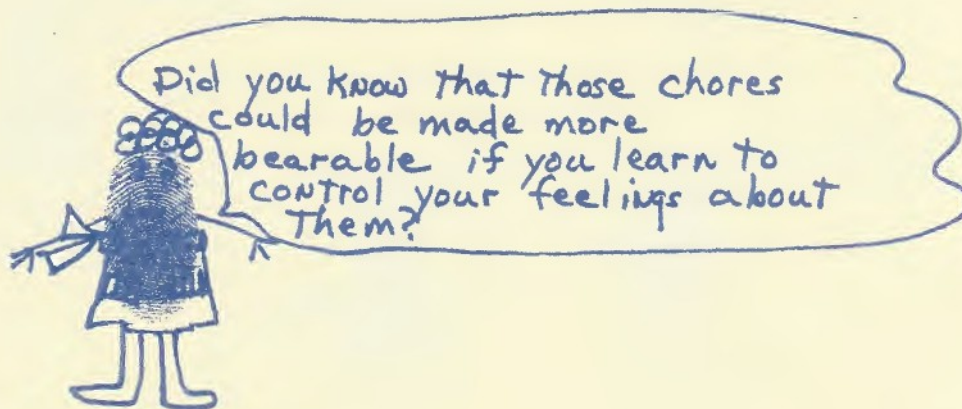 Did you know that those chores
could be made more
bearable if you learn to
control your feelings about
them?